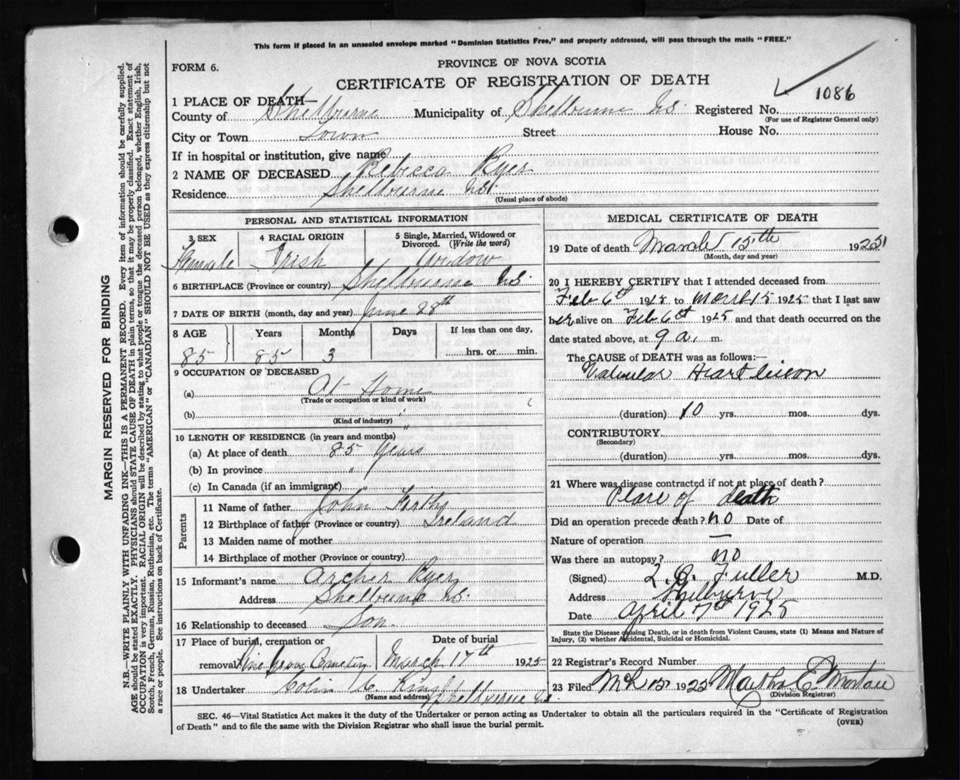 This form if placed in an unsealed envelope marked "Dominion Statistics Free," and properly addressed, will pass through the mails "FREE."
FORM 6.
PROVINCE OF NOVA SCOTIA
CERTIFICATE OF REGISTRATION OF DEATH
1086
1 PLACE OF DEATH—
County of Shelburne Municipality of Shelburne N.S. Registered No.
(For use of Registrar General only)
City or Town Town Street House No.
If in hospital or institution, give name
2 NAME OF DECEASED Rebecca Ryer
Residence Shelbourne N.S.
(Usual place of abode)
PERSONAL AND STATISTICAL INFORMATION
3 SEX 4 RACIAL ORIGIN 5 Single, Married, Widowed or Divorced. (Write the word)
Female Irish Widow
6 BIRTHPLACE (Province or country) Shelburne N.S.
7 DATE OF BIRTH (month, day and year) June 28th
8 AGE Years Months Days If less than one day,
85 85 3 hrs. or min.
9 OCCUPATION OF DECEASED
(a) At Home
(Trade or occupation or kind of work)
(b)
(Kind of industry)
10 LENGTH OF RESIDENCE (in years and months)
(a) At place of death 85 Years
(b) In province "
(c) In Canada (if an immigrant)
Parents
11 Name of father John
12 Birthplace of father (Province or country) Ireland
13 Maiden name of mother
14 Birthplace of mother (Province or country)
15 Informant's name Archer Ryer
Address Shelburne N.S.
16 Relationship to deceased Son
17 Place of burial, cremation or removal Pine Grove Cemetery Date of burial March 17th 1925
18 Undertaker Colin Shelburne N.S.
(Name and address)
MEDICAL CERTIFICATE OF DEATH
19 Date of death March 15th 1925
(Month, day and year)
20 I HEREBY CERTIFY that I attended deceased from
Feb 6th 1925 to March 15 1925 that I last saw
her alive on Feb 6th 1925 and that death occurred on the
date stated above, at 9 a. m.
The CAUSE OF DEATH was as follows:—
Valvular Heart lesion
(duration) 10 yrs. mos. dys.
CONTRIBUTORY
(Secondary)
(duration) yrs. mos. dys.
21 Where was disease contracted if not at place of death?
Place of death
Did an operation precede death? no Date of
Nature of operation —
Was there an autopsy? no
(Signed) Fuller M.D.
Address Shelburne
Date April 7th 1925
State the Disease causing Death, or in death from Violent Causes, state (1) Means and Nature of Injury, (2) whether Accidental, Suicidal or Homicidal.
22 Registrar's Record Number
23 Filed 1925 Martha E.
(Division Registrar)
SEC. 46—Vital Statistics Act makes it the duty of the Undertaker or person acting as Undertaker to obtain all the particulars required in the "Certificate of Registration
of Death" and to file the same with the Division Registrar who shall issue the burial permit.
(OVER)
MARGIN RESERVED FOR BINDING
N.B.—WRITE PLAINLY WITH UNFADING INK—THIS IS A PERMANENT RECORD. Every item of information should be carefully supplied.
AGE should be stated EXACTLY. PHYSICIANS should STATE CAUSE OF DEATH in plain terms, so that it may be properly classified. Exact statement of
OCCUPATION is very important. RACIAL ORIGIN will be described by stating to what people or tongue the deceased person belonged, whether English, Irish,
Scotch, French, German, Russian, Ruthenian, etc. The terms "AMERICAN" or "CANADIAN" SHOULD NOT BE USED as they express citizenship but not
a race or people. See instructions on back of Certificate.